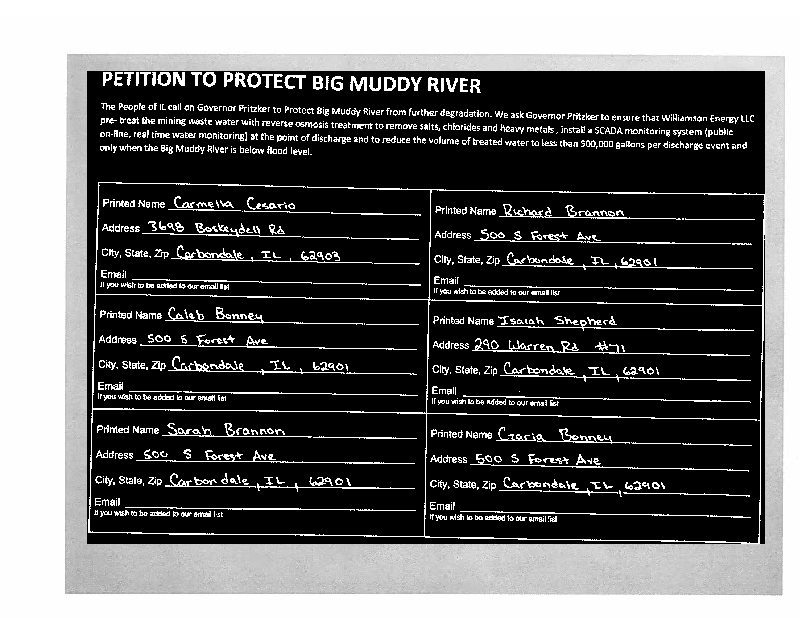 PETITION TO PROTECT BIG MUDDY RIVER
The People of IL call on Governor Pritzker to Protect Big Muddy River from further degradation. We ask Governor Pritzker to ensure that Williamson Energy LLC
pre-treat the mining waste water with reverse osmosis treatment to remove salts, chlorides and heavy metals, install a SCADA monitoring system (public
on-line, real time water monitoring) at the point of discharge and to reduce the volume of treated water to less than 500,000 gallons per discharge event and
only when the Big Muddy River is below flood level.
Printed Name Carmella Cesario
Address 3698 Boskeydell Rd
City, State, Zip Carbondale, IL, 62903
Email
If you wish to be added to our email list
Printed Name Richard Brannon
Address 500 S Forest Ave
City, State, Zip Carbondale, IL, 62901
Email
If you wish to be added to our email list
Printed Name Caleb Bonney
Address 500 S Forest Ave
City, State, Zip Carbondale, IL, 62901
Email
If you wish to be added to our email list
Printed Name Isaiah Shepherd
Address 290 Warren Rd #71
City, State, Zip Carbondale, IL, 62901
Email
If you wish to be added to our email list
Printed Name Sarah Brannon
Address 500 S Forest Ave
City, State, Zip Carbondale, IL, 62901
Email
If you wish to be added to our email list
Printed Name Bonney
Address 500 S Forest Ave
City, State, Zip Carbondale, IL, 62901
Email
If you wish to be added to our email list